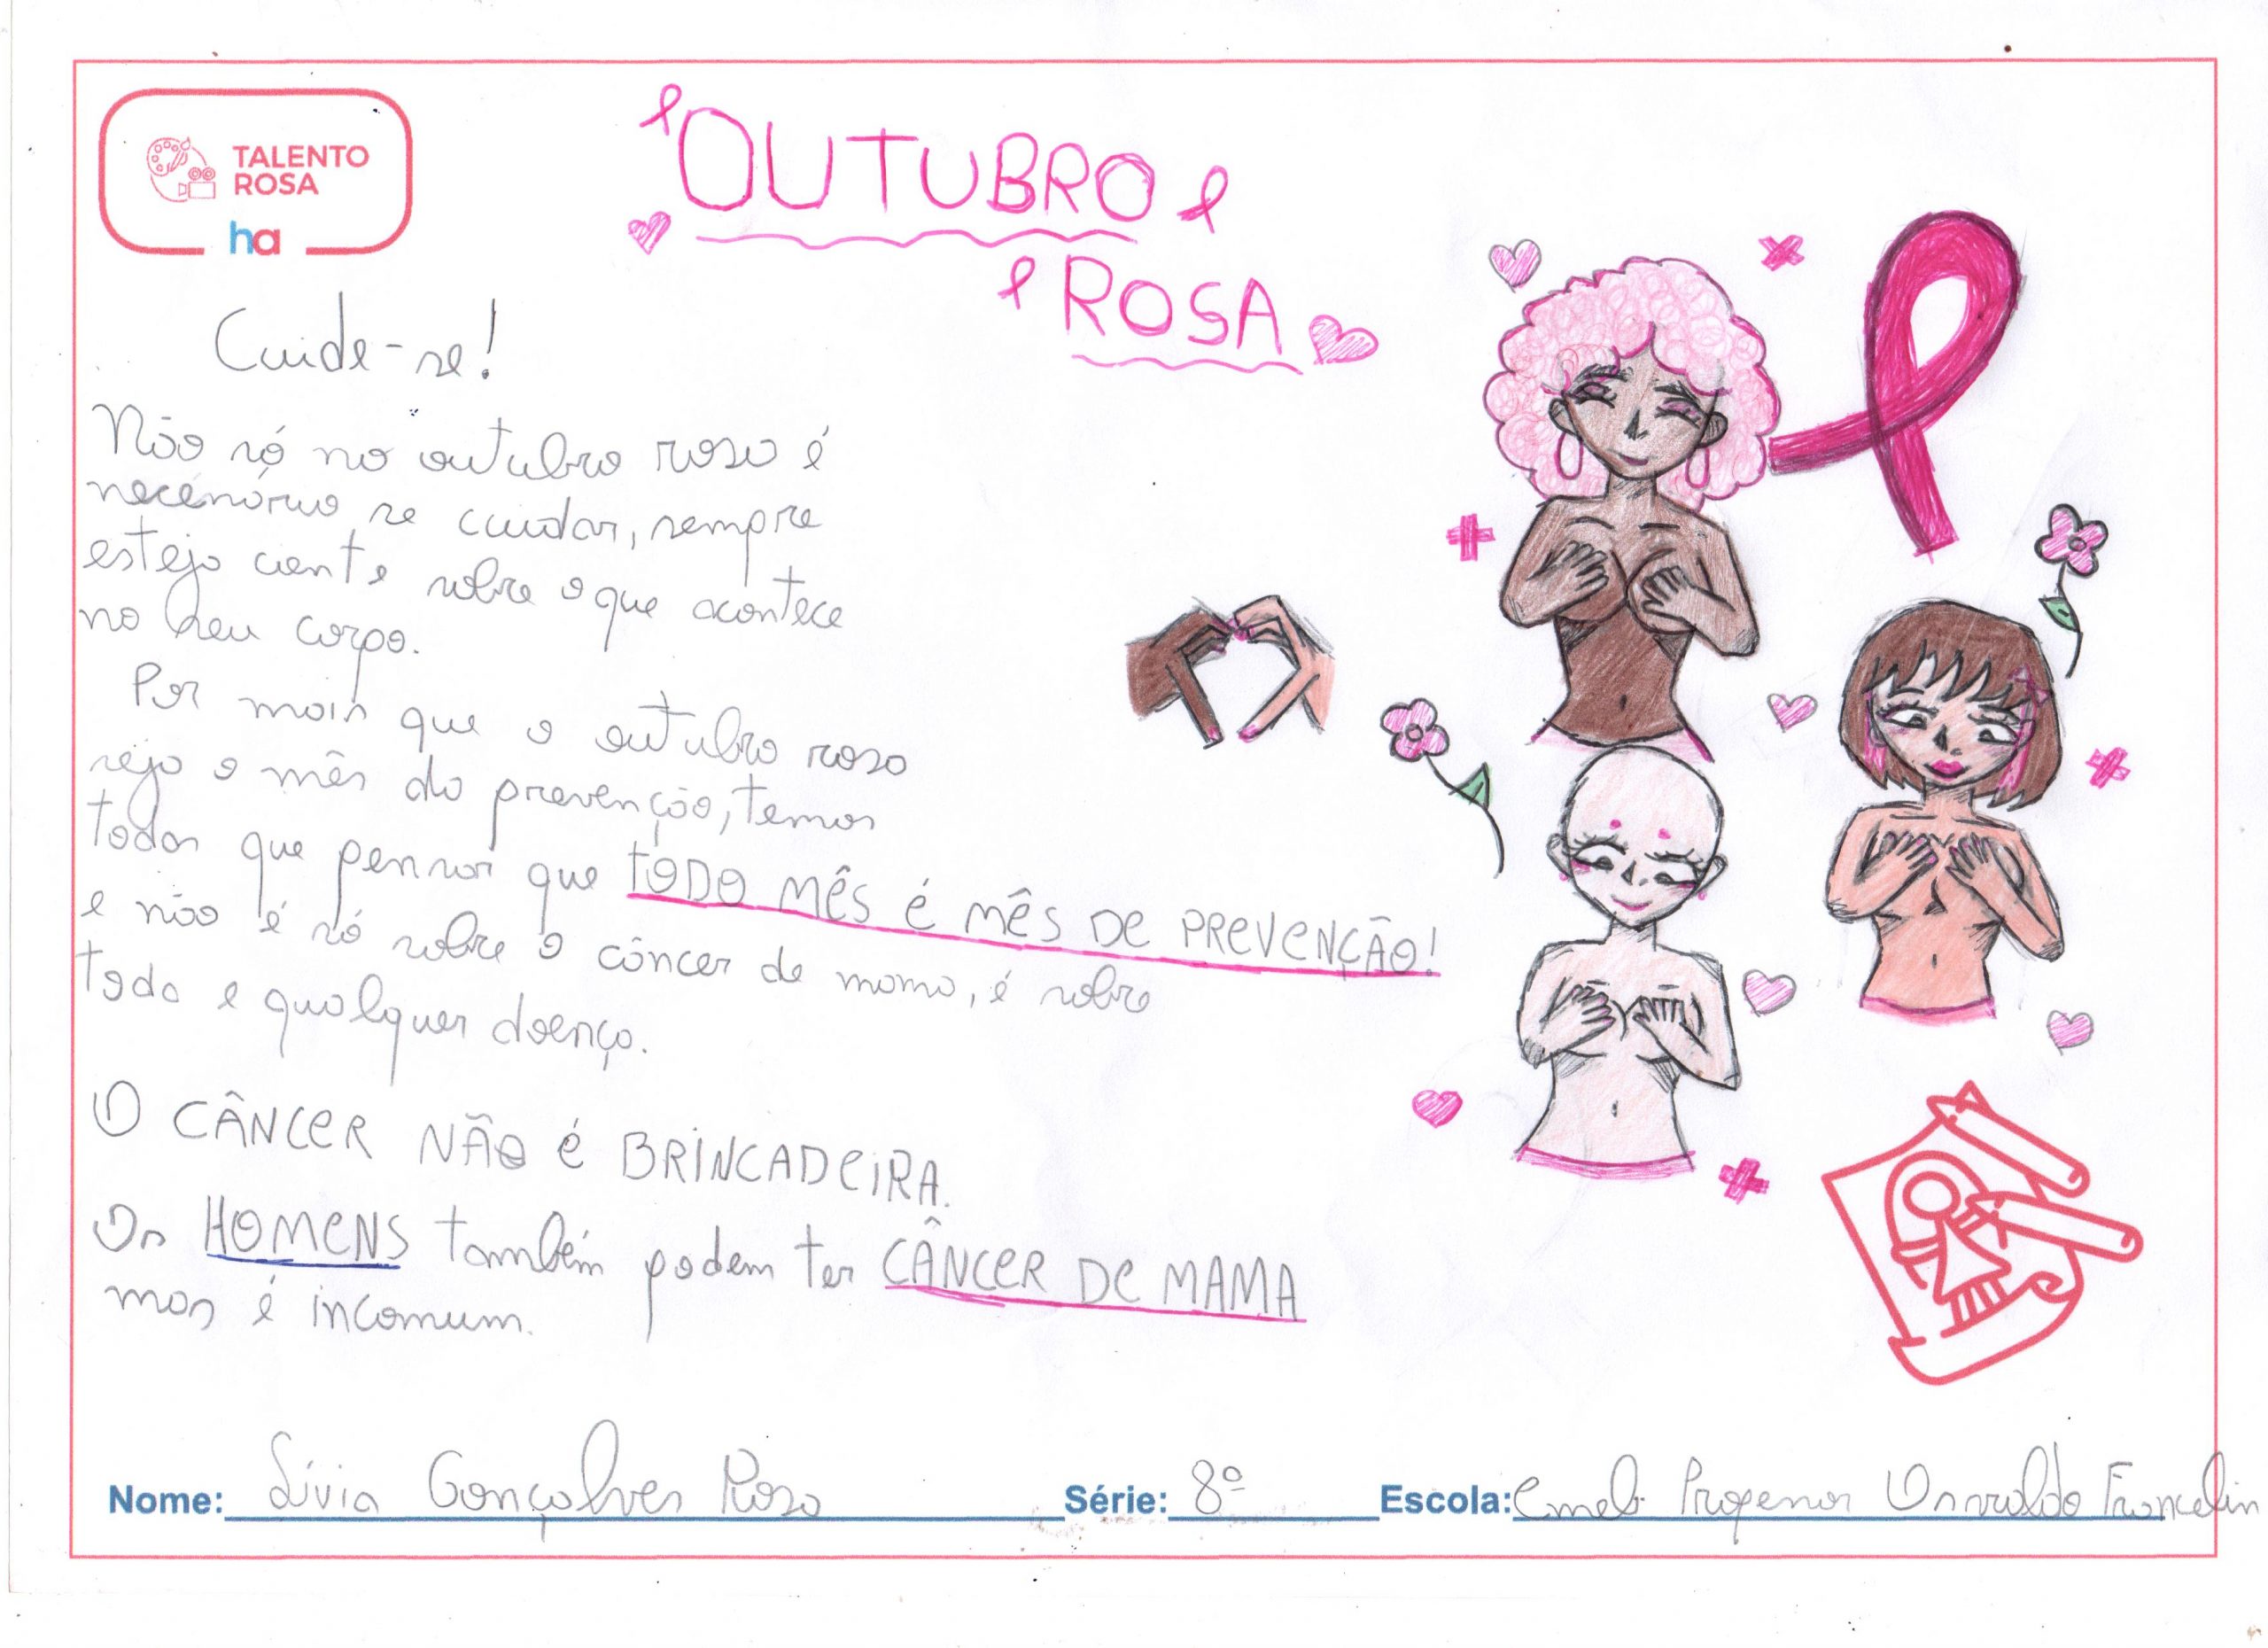 TALENTO
ROSA
ha
OUTUBRO
ROSA
Cuide-se!
Não só no outubro rosa é
necessário se cuidar, sempre
esteja ciente sobre o que acontece
no seu corpo.
Por mais que o outubro rosa
seja o mês da prevenção, temos
todos que pensar que TODO MÊS É MÊS DE PREVENÇÃO!
e não é só sobre o câncer de mama, é sobre
toda e qualquer doença.
O CÂNCER NÃO É BRINCADEIRA.
Os HOMENS também podem ter CÂNCER DE MAMA
mas é incomum.
Nome: Lívia Gonçalves Rosa Série: 8º Escola: Emeb Professor Osvaldo Francelin